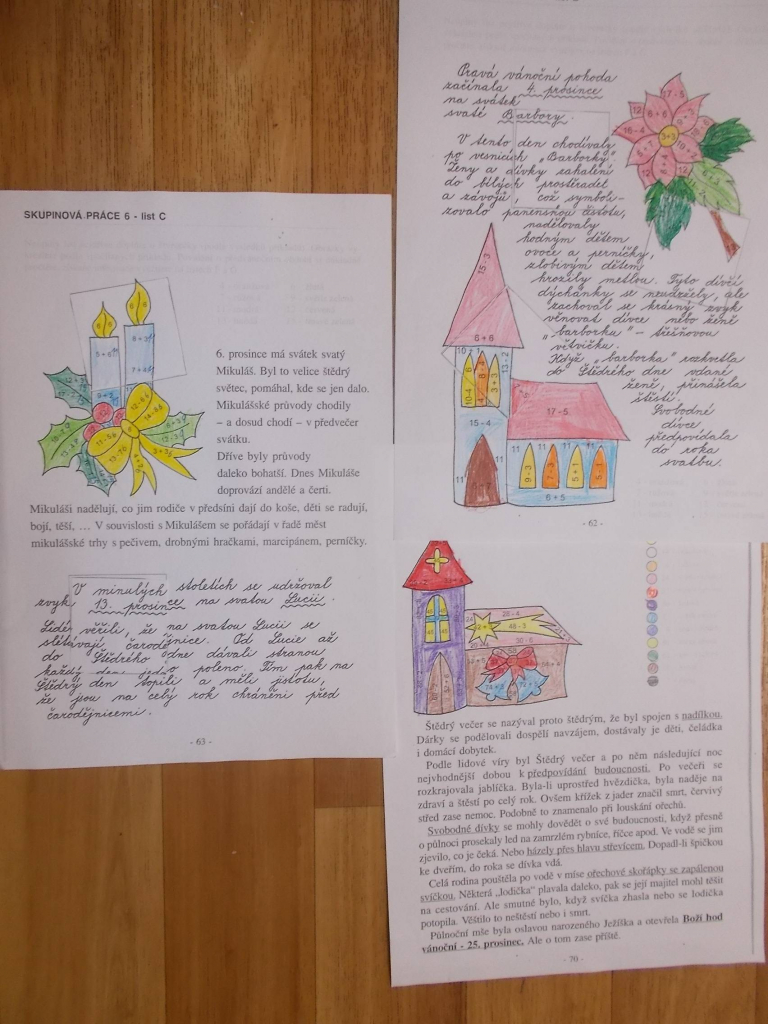 SKUPINOVÁ PRÁCE 6 - list C
6. prosince má svátek svatý
Mikuláš. Byl to velice štědrý
světec, pomáhal, kde se jen dalo.
Mikulášské průvody chodily
– a dosud chodí – v předvečer
svátku.
Dříve byly průvody
daleko bohatší. Dnes Mikuláše
doprovází andělé a čerti.
Mikuláši nadělují, co jim rodiče v předsíni dají do koše, děti se radují,
bojí, těší, … V souvislosti s Mikulášem se pořádají v řadě měst
mikulášské trhy s pečivem, drobnými hračkami, marcipánem, perníčky.
V minulých stoletích se udržoval
zvyk 13. prosince na svatou Lucii.
Lidé věřili, že na svatou Lucii se
slétávají čarodějnice. Od Lucie až
do Štědrého dne dávali stranou
každý den jedno poleno. Tím pak na
Štědrý den topili a měli jistotu,
že jsou na celý rok chráněni před
čarodějnicemi.
- 63 -
Pravá vánoční pohoda
začínala 4. prosince
na svátek
svaté Barbory.
V tento den chodívaly
po vesnicích „Barborky“.
Ženy a dívky zahalené
do bílých prostěradel
a závojů, což symboli-
zovalo panenskou čistotu,
nadělovaly
hodným dětem
ovoce a perníčky,
zlobivým dětem
hrozily metlou. Tyto dívčí
dýchánky se neudržely, ale
zachoval se krásný zvyk
věnovat dívce nebo ženě
„barborku“ – třešňovou
větvičku.
Když „barborka“ rozkvetla
do Štědrého dne vdané
ženě, přinášela
štěstí.
Svobodné
dívce
předpovídala
do roka
svatbu.
17 - 5
6 + 6
9 + 3
3+3
16 - 4
10 + 2
15 - 3
6 + 6
10 + 1
13 - 2
10-4
8 + 4
3 + 3
17 - 5
15 - 4
11
11
11
11
11
9 - 3
7 - 3
5 + 1
5 - 1
6 + 5
- 62 -
28 - 4
48 - 3
30 - 6
Štědrý večer se nazýval proto štědrým, že byl spojen s nadílkou.
Dárky se podělovali dospělí navzájem, dostávaly je děti, čeládka
i domácí dobytek.
Podle lidové víry byl Štědrý večer a po něm následující noc
nejvhodnější dobou k předpovídání budoucnosti. Po večeři se
rozkrajovala jablíčka. Byla-li uprostřed hvězdička, byla naděje na
zdraví a štěstí po celý rok. Ovšem křížek z jader značil smrt, červivý
střed zase nemoc. Podobně to znamenalo při louskání ořechů.
Svobodné dívky se mohly dovědět o své budoucnosti, když přesně
o půlnoci prosekaly led na zamrzlém rybníce, říčce apod. Ve vodě se jim
zjevilo, co je čeká. Nebo házely přes hlavu střevícem. Dopadl-li špičkou
ke dveřím, do roka se dívka vdá.
Celá rodina pouštěla po vodě v míse ořechové skořápky se zapálenou
svíčkou. Některá „lodička“ plavala daleko, pak se její majitel mohl těšit
na cestování. Ale smutné bylo, když svíčka zhasla nebo se lodička
potopila. Věštilo to neštěstí nebo i smrt.
Půlnoční mše byla oslavou narozeného Ježíška a otevřela Boží hod
vánoční - 25. prosinec. Ale o tom zase příště.
- 70 -